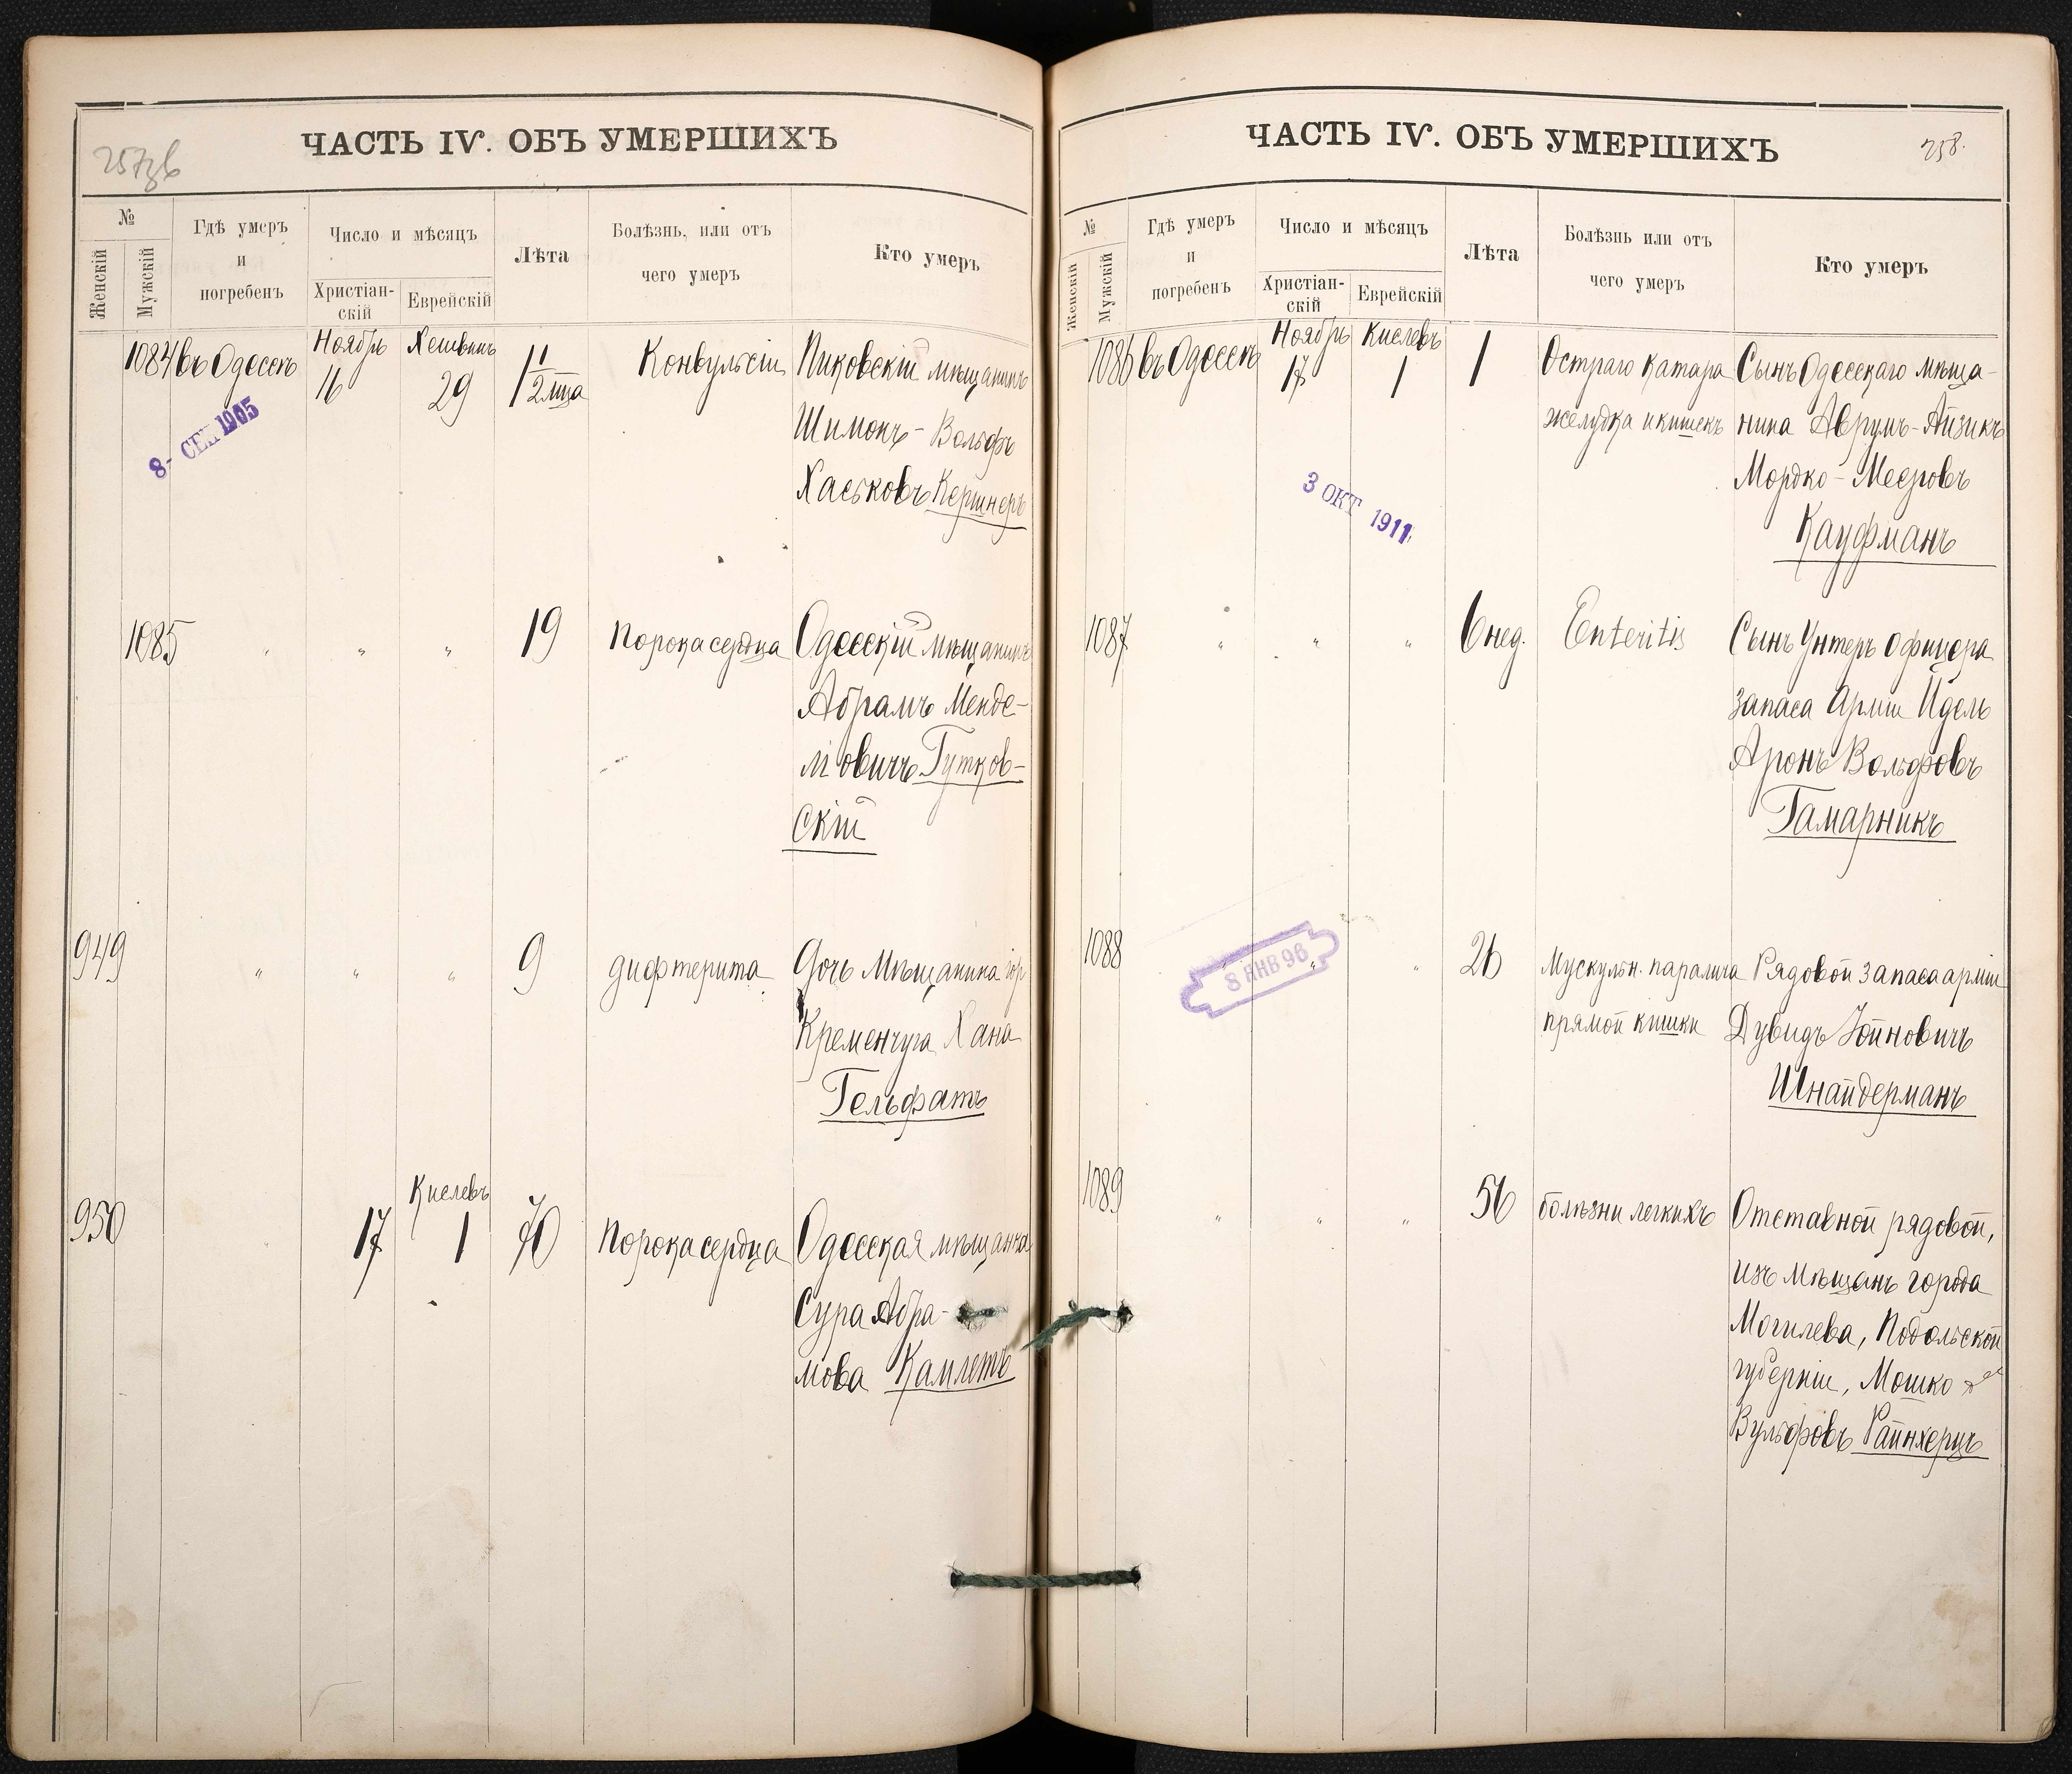 257об
ЧАСТЬ IV. ОБЪ УМЕРШИХЪ
№
Женскій
Мужскій
Гдѣ умеръ
и
погребенъ
Число и мѣсяцъ
Христіан-
скій
Еврейскій
Лѣта
Болѣзнь, или отъ
чего умеръ
Кто умеръ
1084 въ Одессѣ Ноябрь 16 Хешванъ 29 1 1/2 мца Конвульсіи Пиковскій мѣщанинъ
Шимонъ-Вольфъ
Хаськовъ Кершнеръ
8- СЕН 1905
1085 " " " 19 Порока сердца Одесскій мѣщанинъ
Абрамъ Менде-
лiовичъ Гутков-
скій
949 " " " 9 дифтерита Дочь Мѣщанина гор
Кременчуга Хана
Гельфатъ
950 " 17 Кислевъ 1 70 Порока сердца Одесская мѣщанка
Сура Абра-
мова Камлетъ
ЧАСТЬ IV. ОБЪ УМЕРШИХЪ
258.
№
Женскій
Мужскій
Гдѣ умеръ
и
погребенъ
Число и мѣсяцъ
Христіан-
скій
Еврейскій
Лѣта
Болѣзнь или отъ
чего умеръ
Кто умеръ
1086 въ Одессѣ Ноябрь 17 Кислевъ 1 1 Остраго катара Сынъ Одесскаго мѣща-
желудка и кишекъ нина Аврумъ-Айзикъ
Мордко-Мееровъ
Кауфманъ
3 ОКТ 1911
1087 " " " 6 нед. Enteritis Сынъ Унтеръ офицера
запаса Арміи Идель
Аронъ Вольфовъ
Гамарникъ
1088 " " " 26 Мускульн. паралича Рядовой запаса арміи
прямой кишки Дувидъ Іойновичъ
Шнайдерманъ
8 ЯНВ 96
1089 " " " 56 болѣзни легкихъ Отставной рядовой,
изъ мѣщанъ города
Могилева, Подольской
губерніи, Мошко
Вульфовъ Райнхерцъ